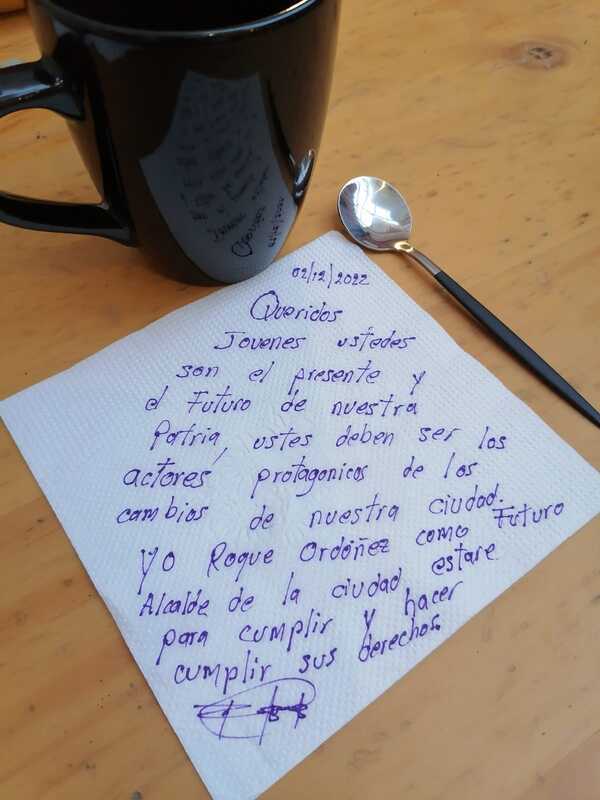 02/12/2022
Queridos
Jovenes ustedes
son el presente y
el Futuro de nuestra
Patria, ustes deben ser los
actores protagonicos de los
cambios de nuestra ciudad.
Yo Roque Ordóñez como Futuro
Alcalde de la ciudad estare
para cumplir y hacer
cumplir sus derechos.